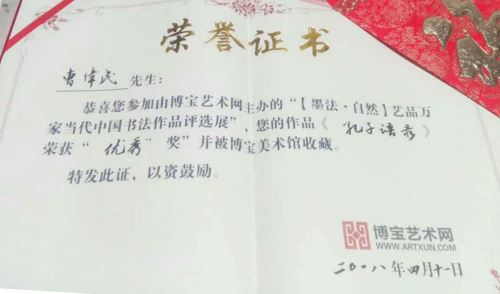 荣誉证书
曹伟民 先生：
恭喜您参加由博宝艺术网主办的“【墨法·自然】艺品万
家当代中国书法作品评选展”，您的作品《 孔子语录 》
荣获“ 优秀 ”奖”并被博宝美术馆收藏。
特发此证，以资鼓励。
博宝艺术网
WWW.ARTXUN.COM
二〇一八年四月十一日